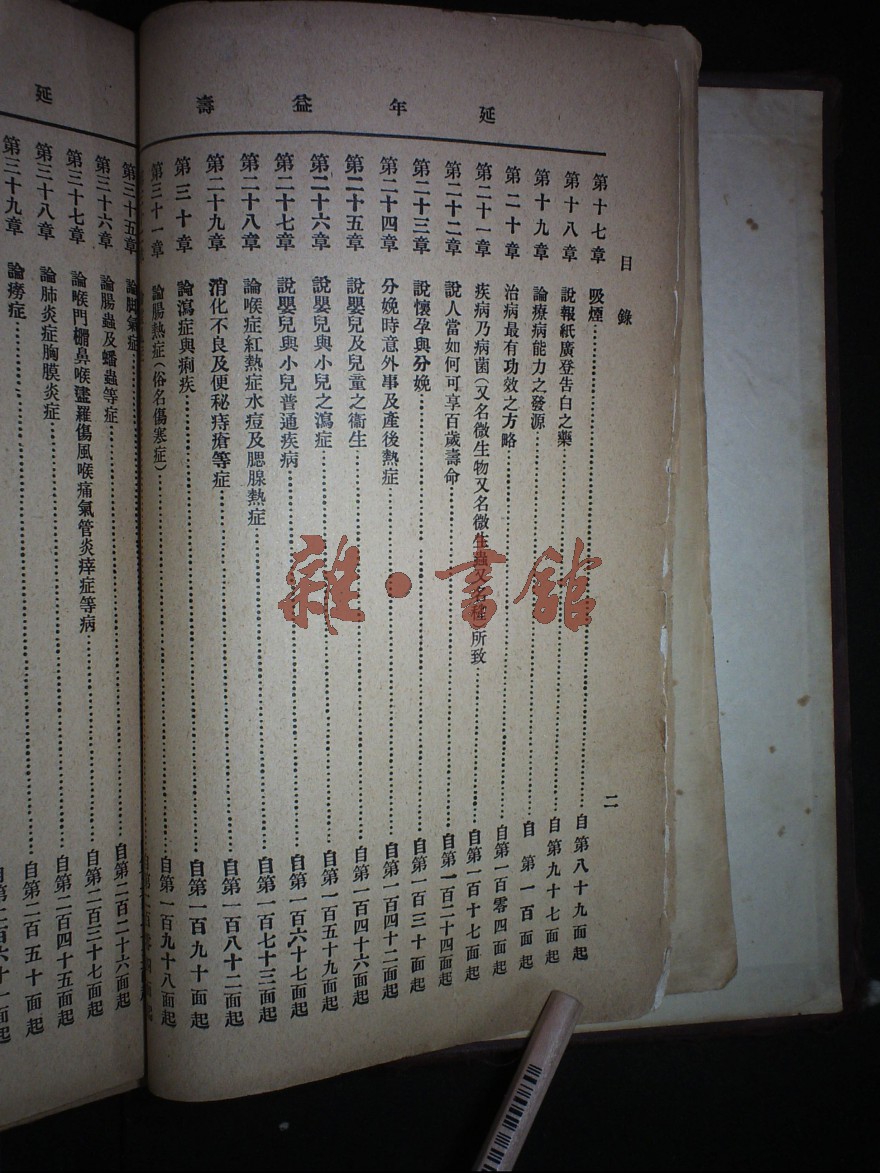 延年益壽
目錄
二
第十七章 吸煙 自第八十九面起
第十八章 說報紙廣登告白之藥 自第九十七面起
第十九章 論療病能力之發源 自第一百面起
第二十章 治病最有功效之方略 自第一百零四面起
第二十一章 疾病乃病菌(又名微生物又名微生蟲又名種)所致 自第一百十七面起
第二十二章 說人當如何可享百歲壽命 自第一百二十四面起
第二十三章 說懷孕與分娩 自第一百三十面起
第二十四章 分娩時意外事及產後熱症 自第一百四十二面起
第二十五章 說嬰兒及兒童之衞生 自第一百四十六面起
第二十六章 說嬰兒與小兒之瀉症 自第一百五十九面起
第二十七章 說嬰兒與小兒普通疾病 自第一百六十七面起
第二十八章 論喉症紅熱症水痘及腮腺熱症 自第一百七十三面起
第二十九章 消化不良及便秘痔瘡等症 自第一百八十二面起
第三十章 論瀉症與痢疾 自第一百九十面起
第三十一章 論腸熱症(俗名傷寒症) 自第一百九十八面起
延
第三十五章 論脚氣症 自第二百二十六面起
第三十六章 論腸蟲及蟠蟲等症 自第二百三十七面起
第三十七章 論喉門棚鼻喉盪羅傷風喉痛氣管炎痒症等病 自第二百四十五面起
第三十八章 論肺炎症胸膜炎症 自第二百五十面起
第三十九章 論癆症 自第二百六十一面起
雜·書館